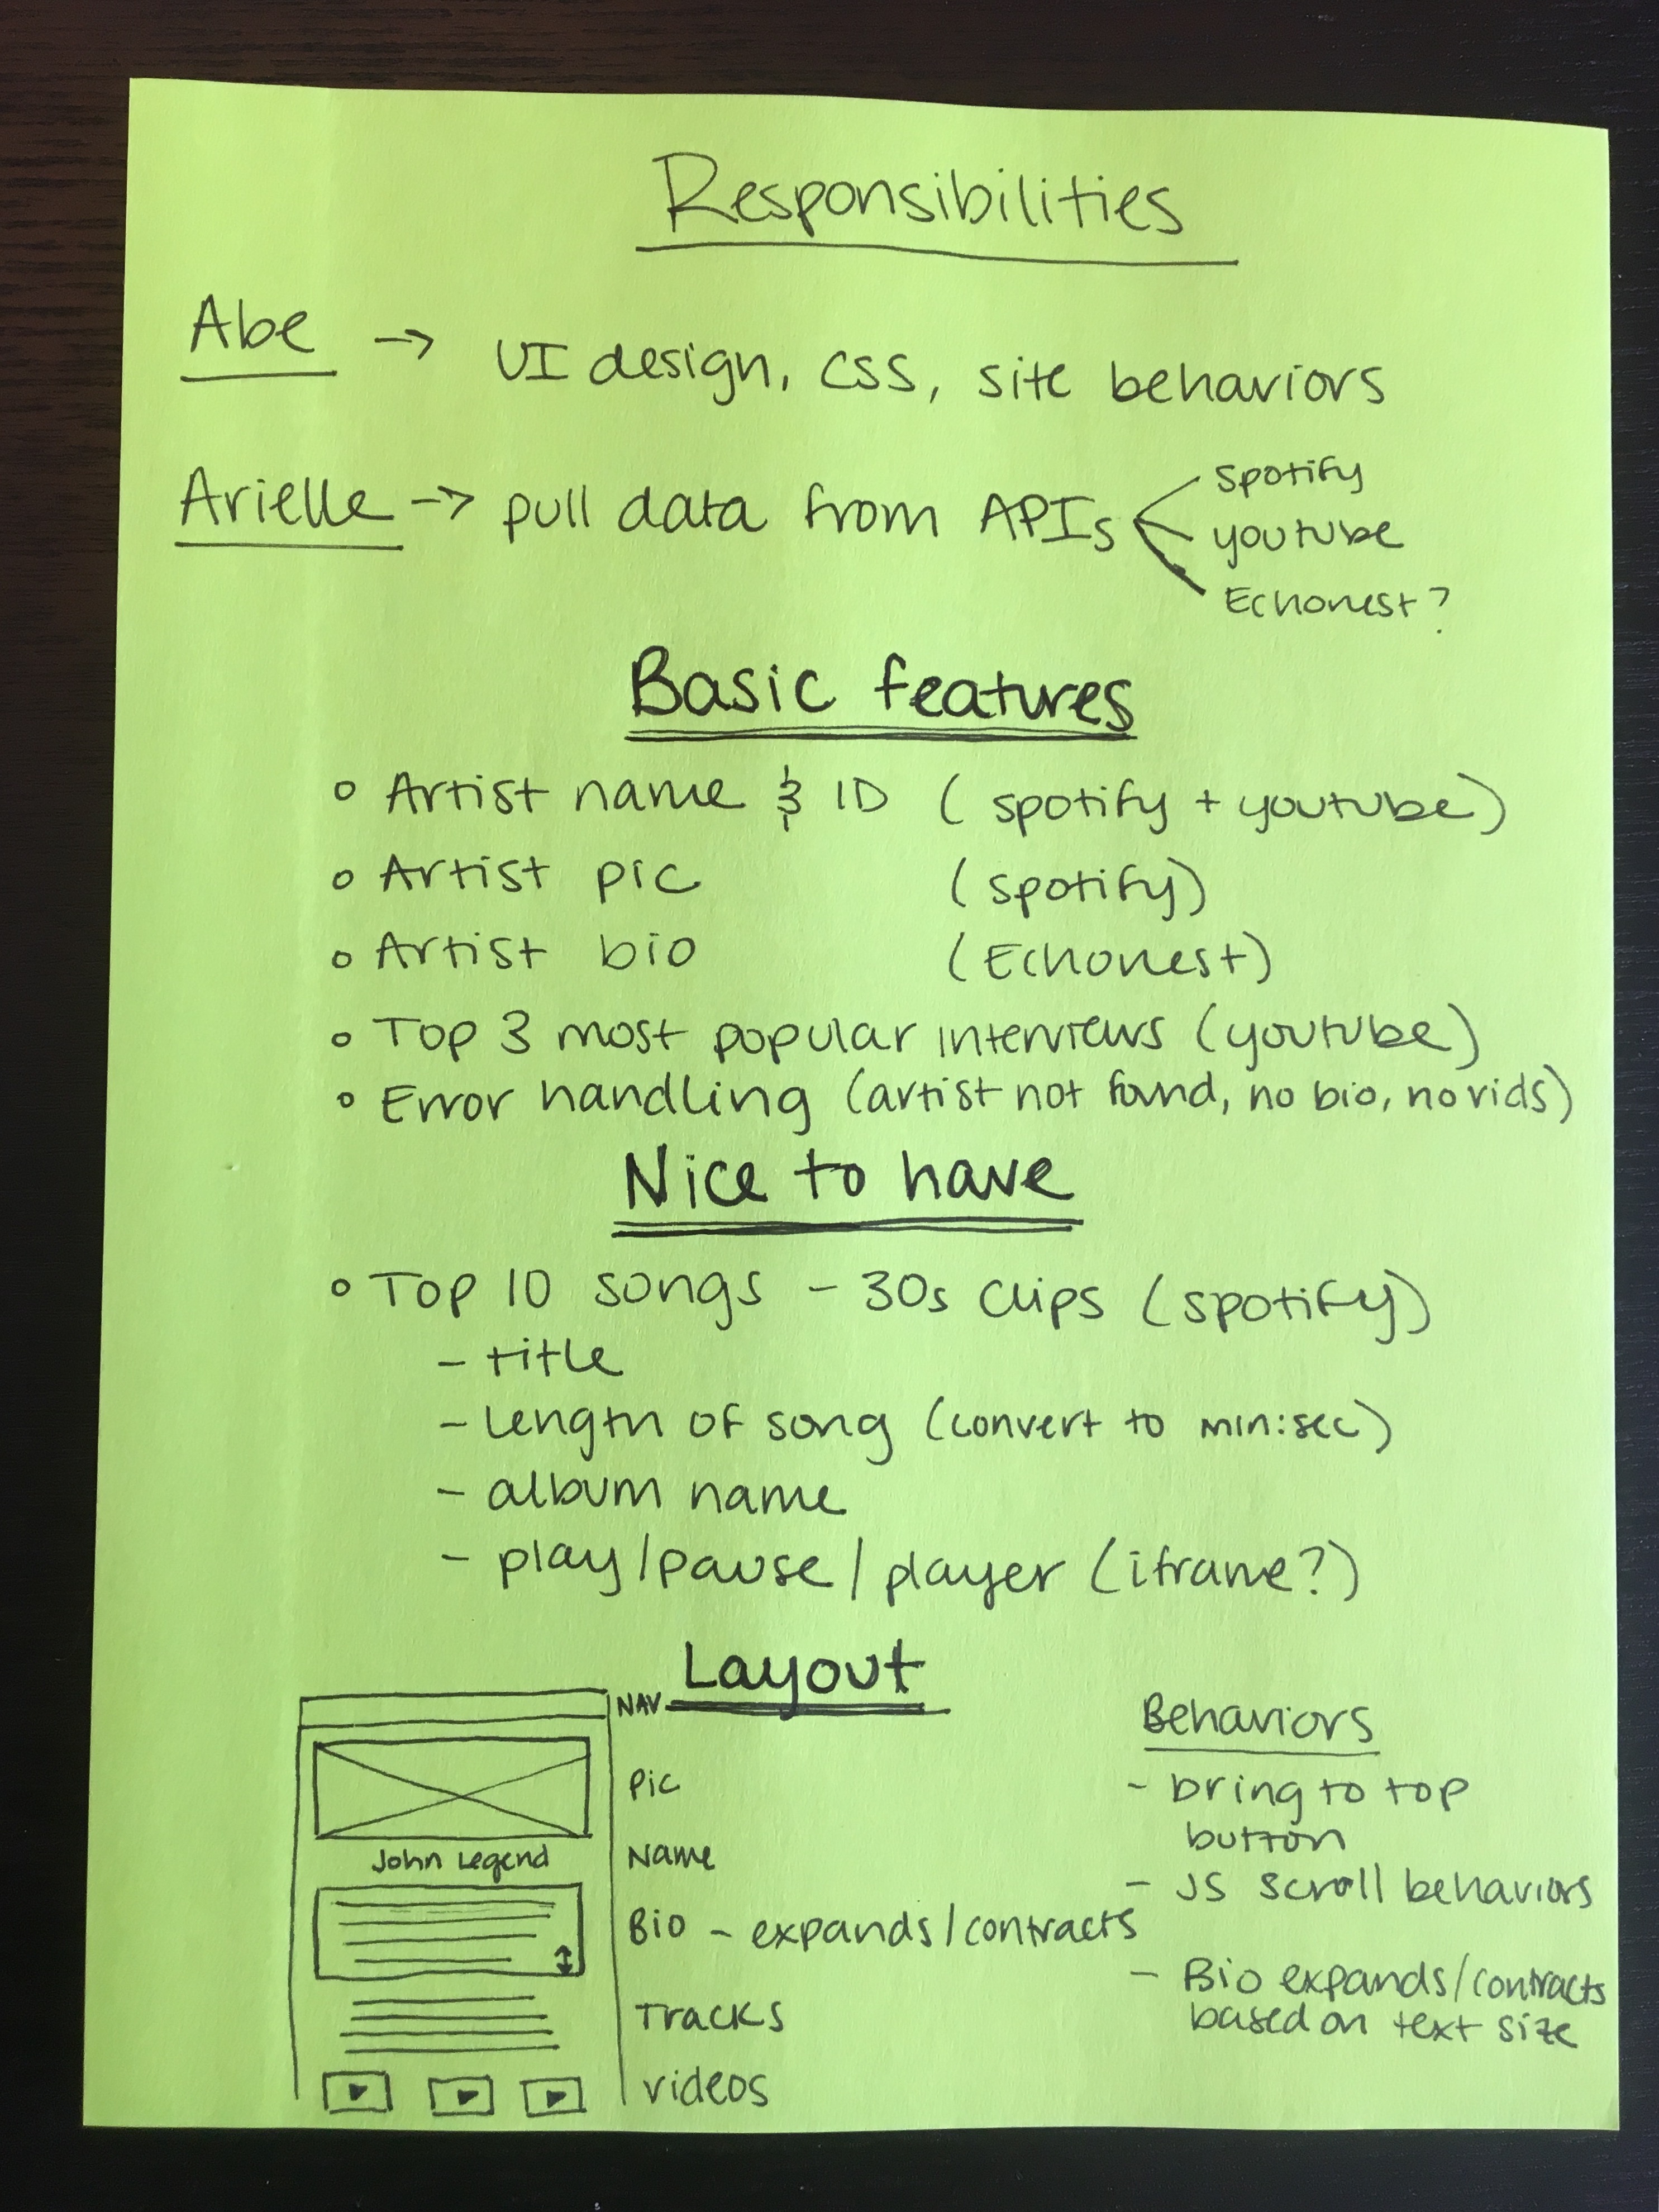 Responsibilities
Abe → UI design, CSS, site behaviors
Arielle → pull data from APIs
Spotify
youtube
Echonest?
Basic features
◦ Artist name & ID (spotify + youtube)
◦ Artist pic (spotify)
◦ Artist bio (Echonest)
◦ Top 3 most popular interviews (youtube)
◦ Error handling (artist not found, no bio, no vids)
Nice to have
◦ Top 10 songs - 30s clips (spotify)
- title
- length of song (convert to min:sec)
- album name
- play/pause/player (iframe?)
Layout
NAV
Pic
John Legend
Name
Bio - expands/contracts
Tracks
videos
Behaviors
- bring to top
button
- JS scroll behaviors
- Bio expands/contracts
based on text size